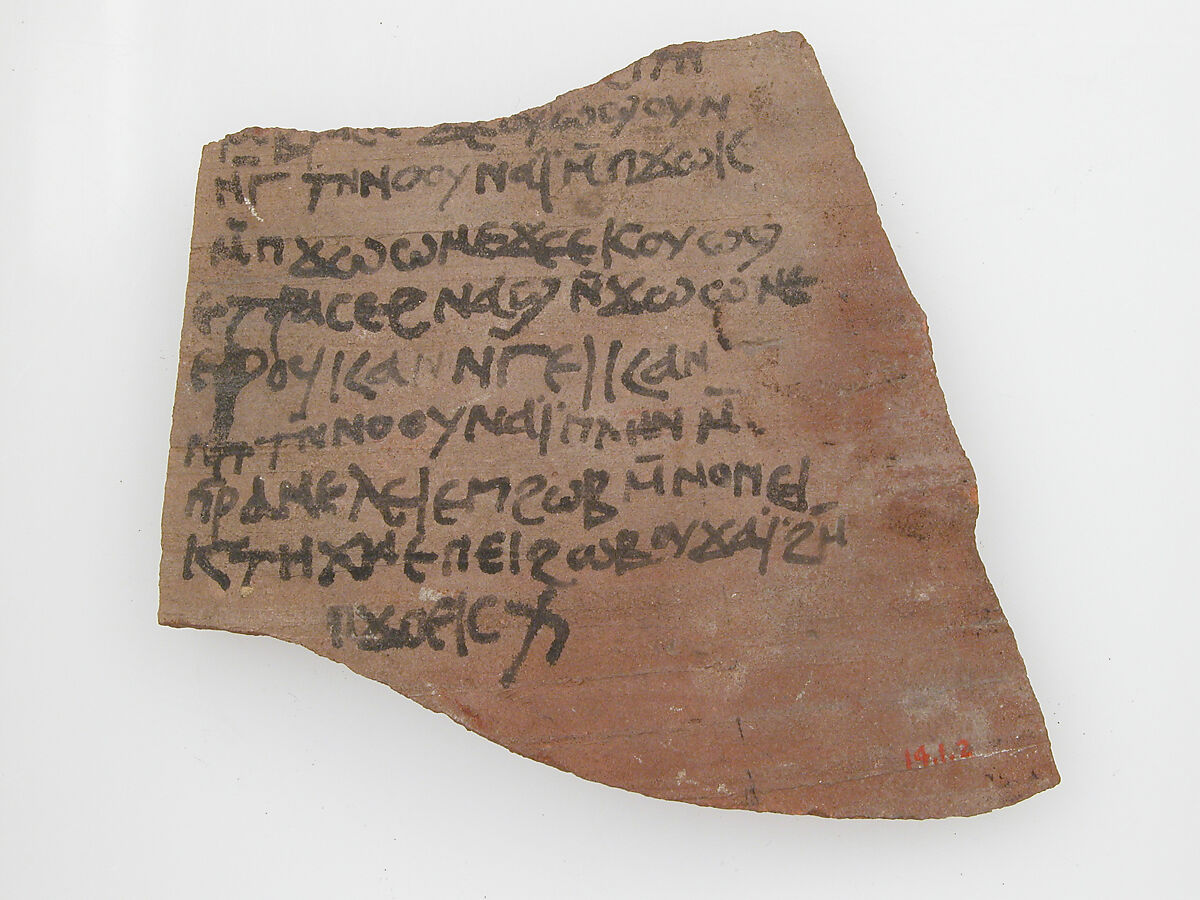 ⲟⲩⲱϣⲟⲩⲛ
ⲛ̄ⲅⲧⲛⲛⲟⲟⲩⲛⲁⲓ̈ⲙ̄ⲡϫⲱⲕ
ⲙ̄ⲡϫⲱⲱⲙⲉϫⲉⲉⲕⲟⲩⲱϣ
ⲉⲧⲣⲁⲥⲉϩⲛⲁϣⲛ̄ϫⲱⲱⲙⲉ
ⲉⲣⲟⲩⲕⲁⲛⲛⲅⲉⲓⲕⲁⲛ
ⲛⲅⲧⲛ̄ⲛⲟⲟⲩⲛⲁⲓ̈ⲡⲗⲏⲛⲙ̄
ⲡⲣⲁⲙⲉⲗⲉⲓⲉⲡϩⲱⲃⲙ̄ⲙⲟⲛⲡⲉⲓ
ⲉⲡⲉⲓϩⲱⲃⲟⲩϫⲁⲓ̈ϩⲙ̄
ⲡϫⲟⲉⲓⲥ ⳨
14.1.2